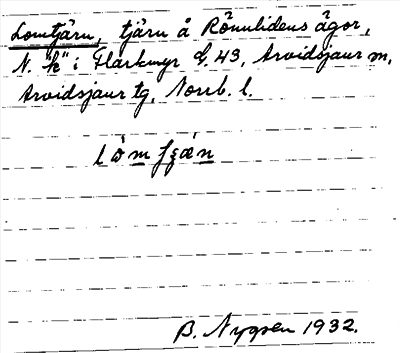 Lomtjärn, tjärn å Rönnlidens ägor,
N. "k" i Flarkmyr E. 43, Arvidsjaur m,
Arvidsjaur tg, Norrb. l.
B. Nygren 1932.